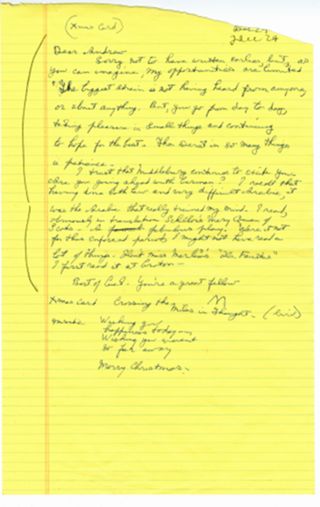 (Xmas Card)
Dec 24
Dear Andrew
Sorry not to have written earlier, but, as
you can imagine, my opportunities are limited
The biggest strain is not having heard from anyone,
or about anything. But, you go from day to day,
taking pleasure in small things and continuing
to hope for the best. In so many things
I trust that Middlebury continues to excite you.
Are you going ahead with German? I recall that
having been both new and very difficult Arabic, it
was the Arabic that really trained my mind. I read,
obviously in translation Schiller's Mary Queen of
Scots. A fabulous play. Were it not
for this enforced period I might not have read a
lot of things. Don't miss
I first read it at Groton
Best of luck. You're a great fellow
Xmas Card Crossing the Miles in Thought -
inside Wishing you
happiness today
Wishing you weren't
so far away
Merry Christmas.